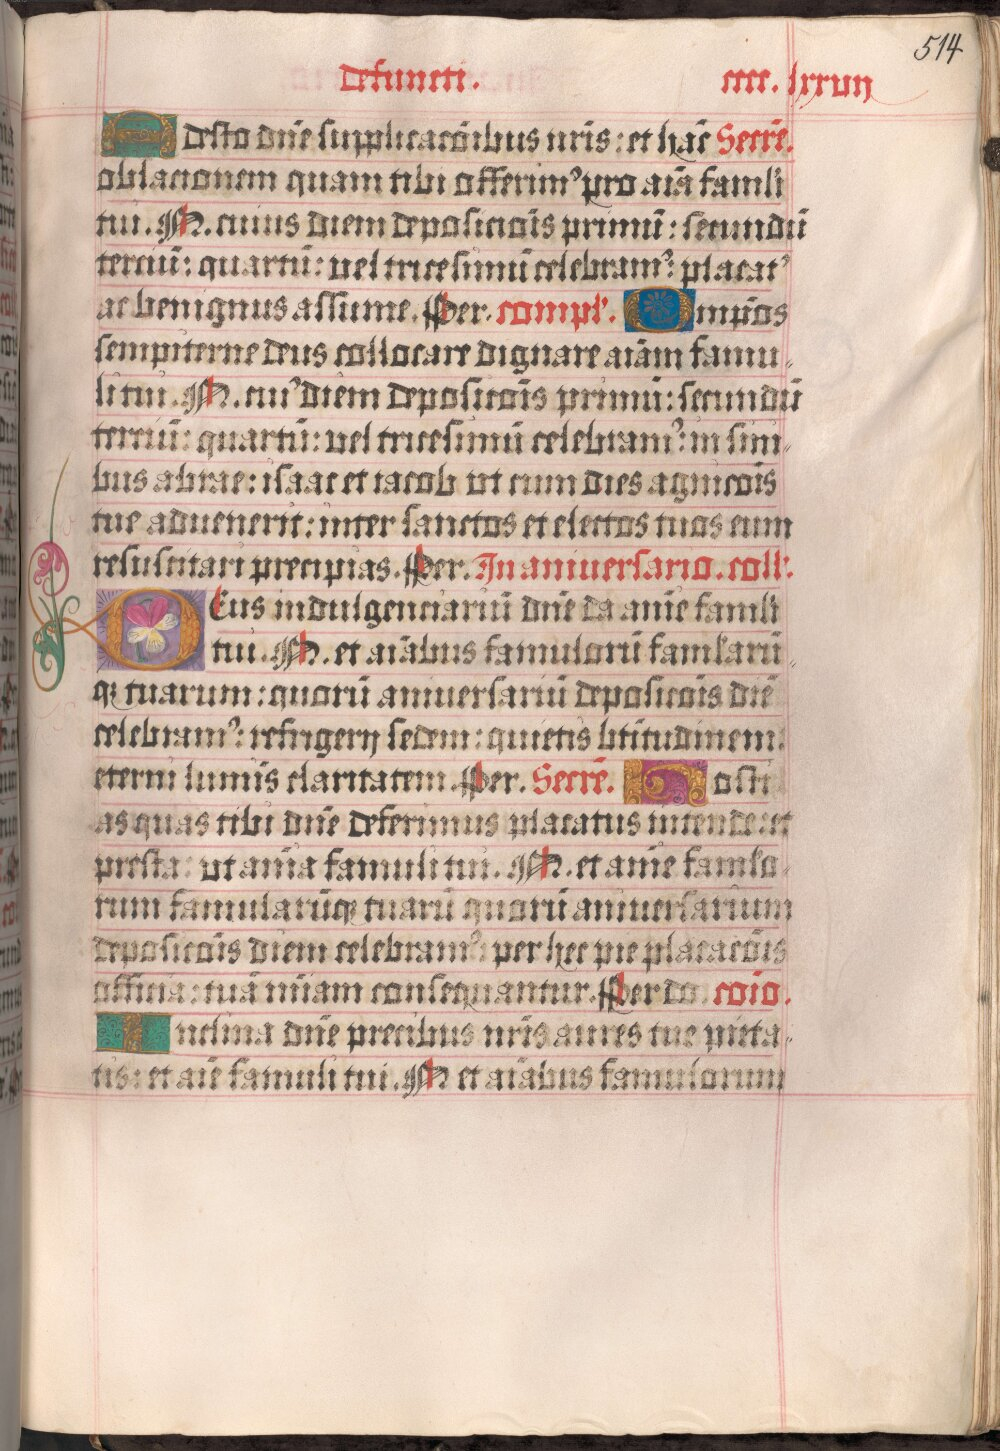 514
Defuncti. cccc. lxxvij
Adesto dn̄e supplicac̄oībus nr̄is: et hāc Secrē.
oblacionem quam tibi offerimꝰ pro aīa famli
tui. N. cuius diem deposicioīs primū: secundū
terciū: quartū: vel tricesimū celebramꝰ: placatꝰ
ac benignus assume. Per. compl'. Omīps
sempiterne deus collocare dignare aīam famu-
li tui. N. cuiꝰ diem deposicōis primū: secundū
terciū: quartū: vel tricesimū celebramꝰ: in sini-
bus abrae: isaac et iacob ut cum dies agnicōis
tue advenerit: inter sanctos et electos tuos eum
resuscitari precipias. Per. In aniversario. coll'.
Deus indulgenciarū dn̄e da anīe famli
tui. N. et aīabus famulorū famlarū-
qꝫ tuarum: quorū aniversariū deposicōis diē
celebramꝰ: refrigerij sedem: quietis btitudinem:
eterni lumīs claritatem. Per. Secrē. Hosti
as quas tibi dn̄e deferimus placatus intende: et
presta: ut anīa famuli tui. N. et anīe famlo-
rum famularūqꝫ tuarū quorū aniversarium
deposicōis diem celebramꝰ: per hec pie placacōis
officia: tuā mīam consequantur. Per do. cōio.
Inclina dn̄e precibus nr̄is aures tue pieta-
tis: et aīe famuli tui. N et aīabus famulorum